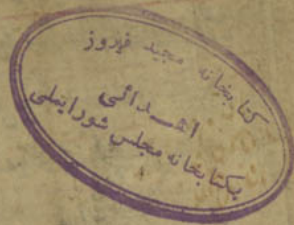 کتابخانه مجید فیروز
اهـــدائی
بکتابخانه مجلس شورایملی